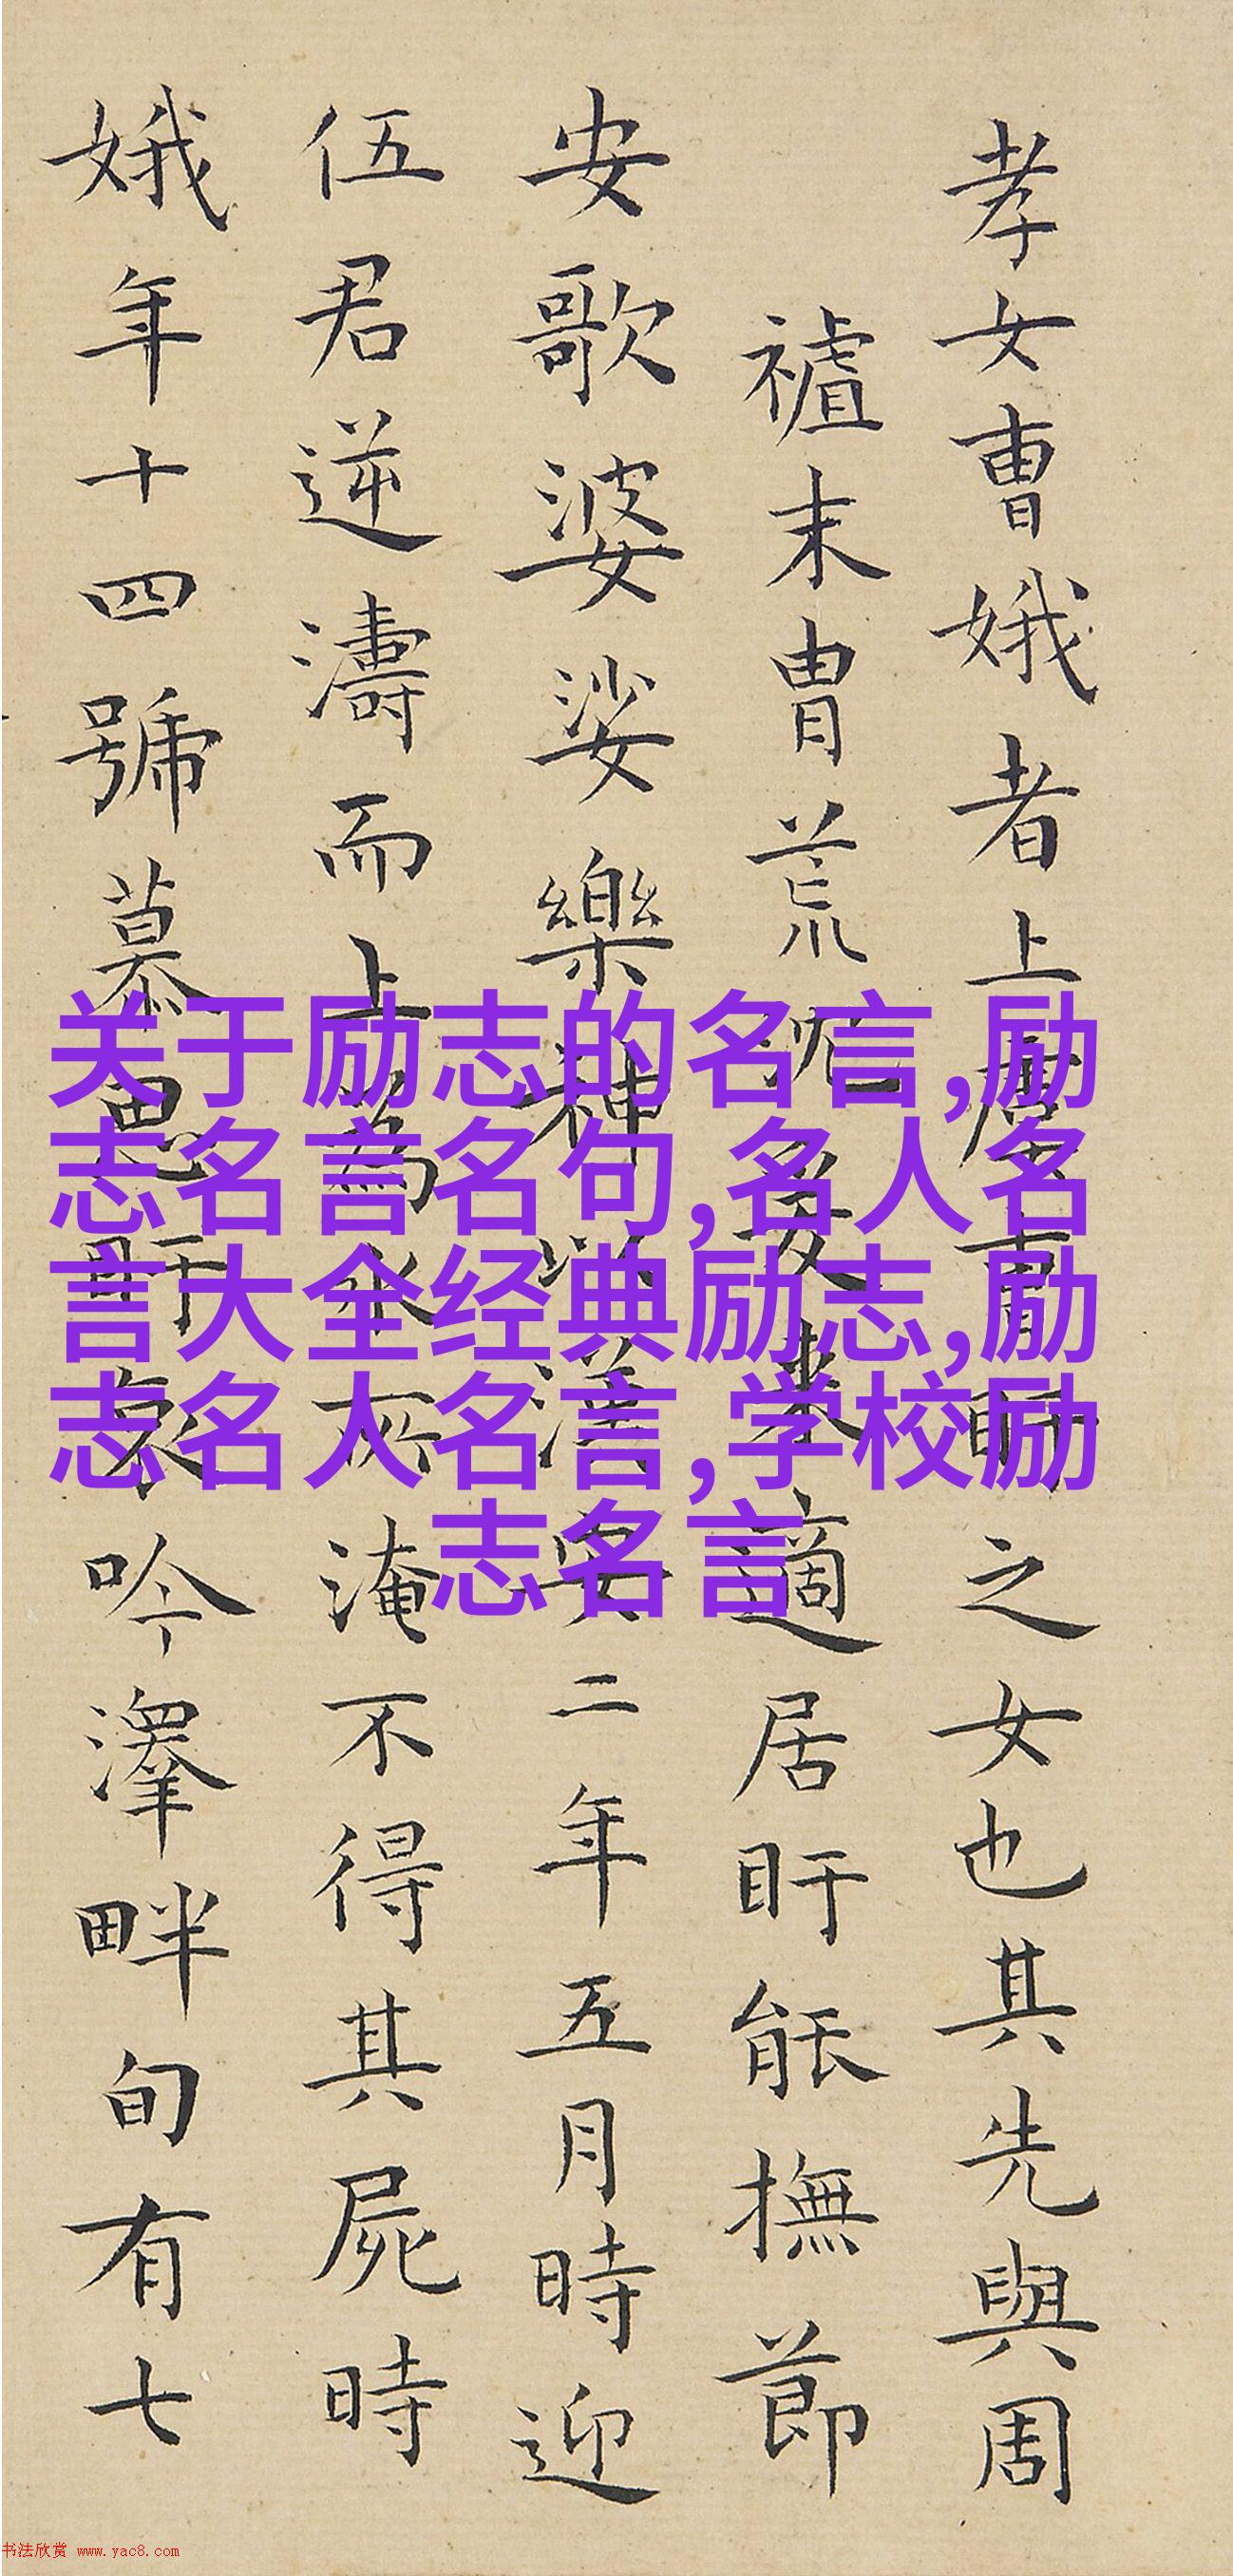 孝女曹娥者上虞曹盱之女也其先與周
末胄荒沉爰来適居盱能撫節
安歌婆娑樂神以漢安二年五月時迎
伍君逆濤而上為水所淹不得其屍時
娥年十四號慕思盱哀吟澤畔旬有七
关于励志的名言,励
志名言名句,名人名
言大全经典励志,励
志名人名言,学校励
志名言
书法欣赏 www.yac8.com